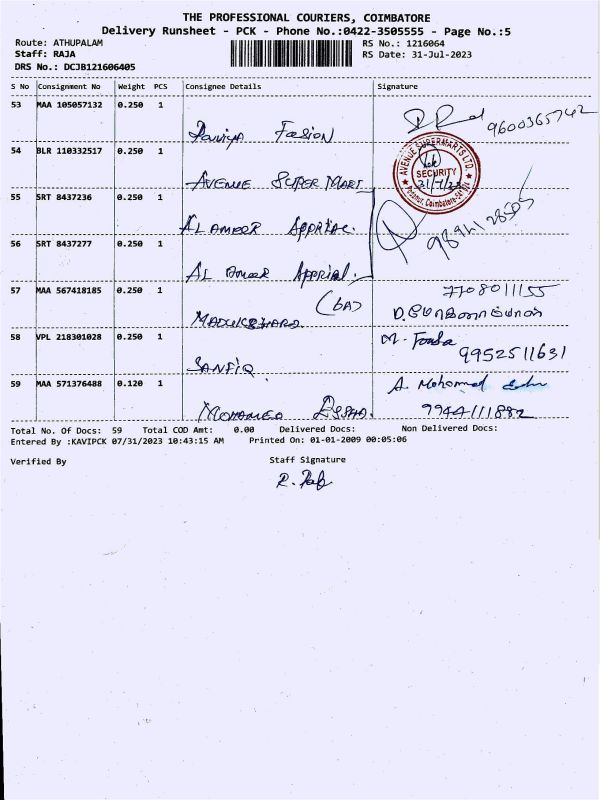 THE PROFESSIONAL COURIERS, COIMBATORE
Delivery Runsheet - PCK - Phone No.:0422-3505555 - Page No.:5
Route: ATHUPALAM
RS No.: 1216064
Staff: RAJA
RS Date: 31-Jul-2023
DRS No.: DCJB121606405
S No Consignment No Weight PCS Consignee Details Signature
53 MAA 105057132 0.250 1
9600365742
54 BLR 110332517 0.250 1
AVENUE SUPERMARTS LTD.
SECURITY
31/7/23
Coimbatore
AVENUE SUPER MART
55 SRT 8437236 0.250 1
AL AMEER
56 SRT 8437277 0.250 1
AL AMEER
57 MAA 567418185 0.250 1
7708011155
58 VPL 218301028 0.250 1
9952511631
59 MAA 571376488 0.120 1
A. Mohammed
MOHAMED
9944111882
Total No. Of Docs: 59 Total COD Amt: 0.00 Delivered Docs: Non Delivered Docs:
Entered By :KAVIPCK 07/31/2023 10:43:15 AM Printed On: 01-01-2009 00:05:06
Verified By Staff Signature